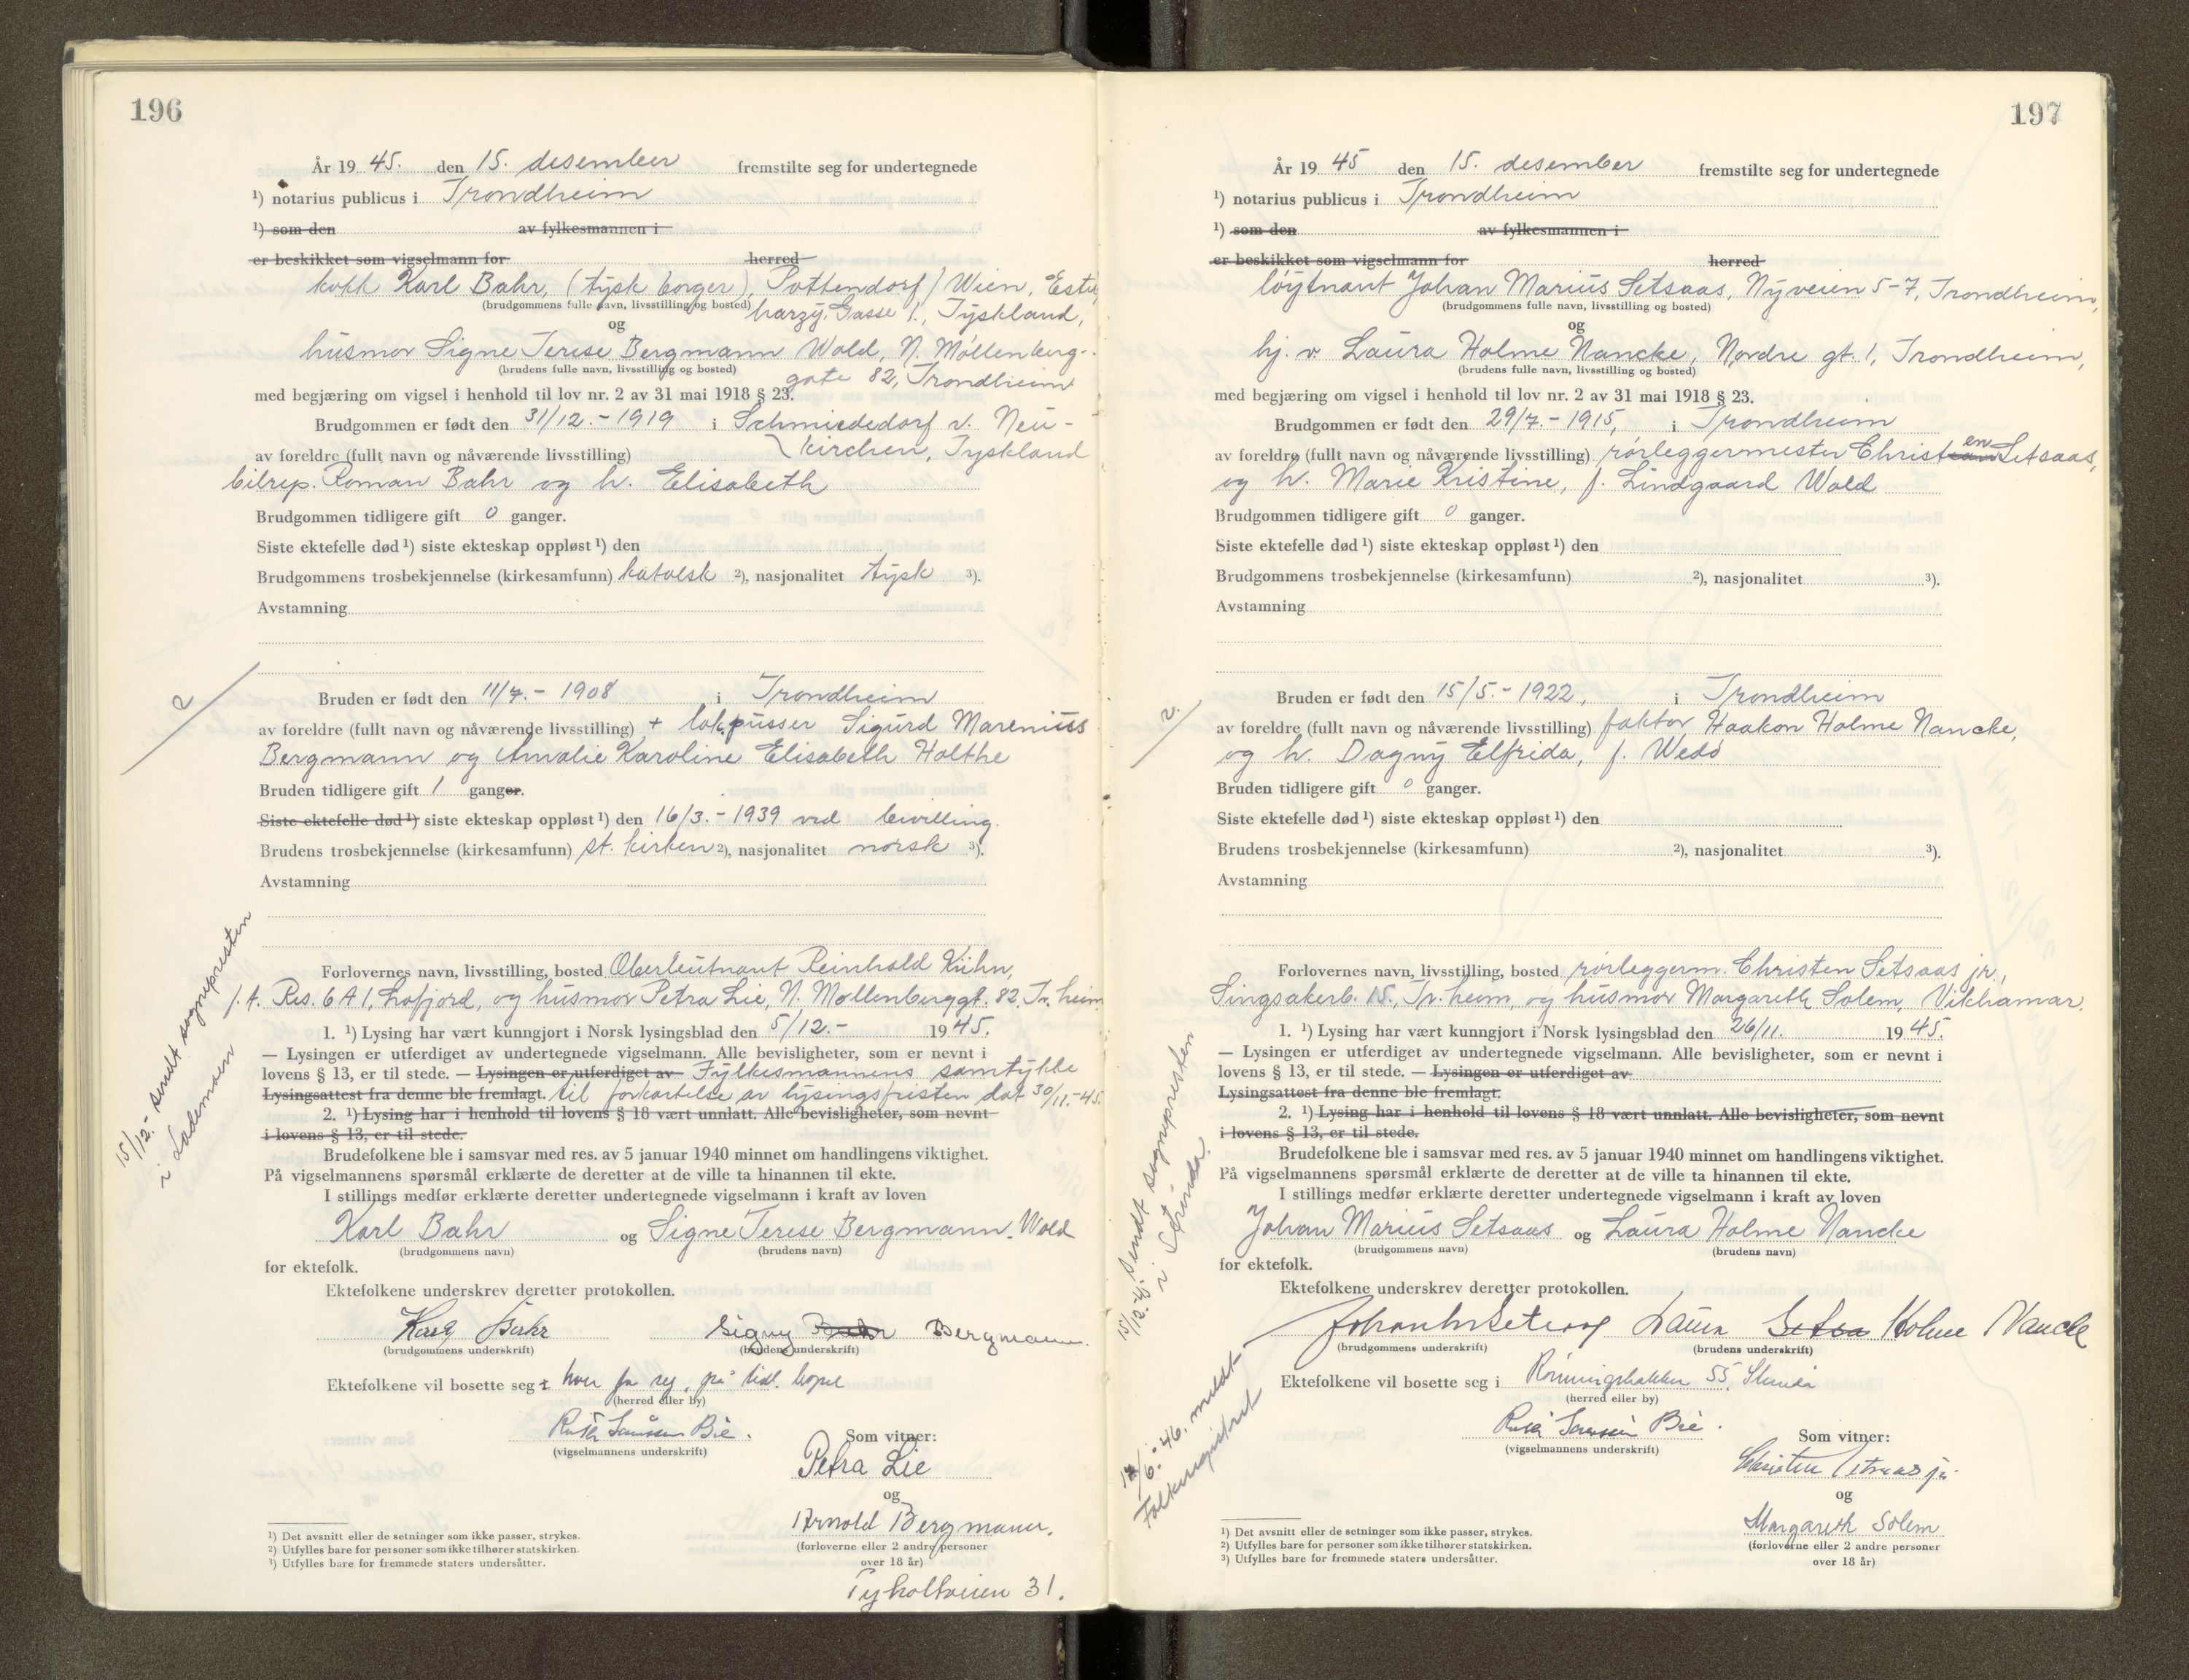 196
År 19 45. den 15. desember fremstilte seg for undertegnede
¹) notarius publicus i Trondheim
¹) som den av fylkesmannen i
er beskikket som vigselmann for herred
kokk Karl Bahr, (tysk borger), Pottendorf / Wien, Ester-
(brudgommens fulle navn, livsstilling og bosted) harzy, Gasse 1., Tyskland,
og
husmor Signe Terese Bergmann Wold, N. Møllenberg-
(brudens fulle navn, livsstilling og bosted) gate 82, Trondheim
med begjæring om vigsel i henhold til lov nr. 2 av 31 mai 1918 § 23.
Brudgommen er født den 31/12.-1919 i Schmiededorf v. Neu-
av foreldre (fullt navn og nåværende livsstilling) kirchen, Tyskland
bilrep. Roman Bahr og h. Elisabeth
Brudgommen tidligere gift 0 ganger.
Siste ektefelle død ¹) siste ekteskap oppløst ¹) den
Brudgommens trosbekjennelse (kirkesamfunn) katolsk ²), nasjonalitet tysk ³).
Avstamning
2
Bruden er født den 11/7.- 1908 i Trondheim
av foreldre (fullt navn og nåværende livsstilling) + lok.pusser Sigurd Marenius
Bergmann og Amalie Karoline Elisabeth Holthe
Bruden tidligere gift 1 ganger.
Siste ektefelle død ¹) siste ekteskap oppløst ¹) den 16/3.- 1939 ved bevilling.
Brudens trosbekjennelse (kirkesamfunn) st. kirken ²), nasjonalitet norsk ³).
Avstamning
Forlovernes navn, livsstilling, bosted Oberleutnant Reinhold Kühn,
f.t. Res. 6 A 1, Lofjord, og husmor Petra Lie, N. Møllenberggt. 82, Tr.heim
1. ¹) Lysing har vært kunngjort i Norsk lysingsblad den 5/12.- 19 45.
— Lysingen er utferdiget av undertegnede vigselmann. Alle bevisligheter, som er nevnt i
lovens § 13, er til stede. — Lysingen er utferdiget av Fylkesmannens samtykke
Lysingsattest fra denne ble fremlagt. til forkortelse av lysingsfristen dat 30/11.-45.
2. ¹) Lysing har i henhold til lovens § 18 vært unnlatt. Alle bevisligheter, som nevnt
i lovens § 13, er til stede.
15/12.- sendt sogneprester
i Lademoen
Brudefolkene ble i samsvar med res. av 5 januar 1940 minnet om handlingens viktighet.
På vigselmannens spørsmål erklærte de deretter at de ville ta hinannen til ekte.
I stillings medfør erklærte deretter undertegnede vigselmann i kraft av loven
Karl Bahr og Signe Terese Bergmann Wold
(brudgommens navn) (brudens navn)
for ektefolk.
Ektefolkene underskrev deretter protokollen.
Karl Bahr Signy Bahr Bergmann.
(brudgommens underskrift) (brudens underskrift)
Ektefolkene vil bosette seg i hver for seg, på tidl. bopel
(herred eller by)
Ruth Bie.
(vigselmannens underskrift)
Som vitner:
Petra Lie
og
Arnold Bergmann.
(forloverne eller 2 andre personer
over 18 år)
Tyholtveien 31.
¹) Det avsnitt eller de setninger som ikke passer, strykes.
²) Utfylles bare for personer som ikke tilhører statskirken.
³) Utfylles bare for fremmede staters undersåtter.
197
År 19 45 den 15. desember fremstilte seg for undertegnede
¹) notarius publicus i Trondheim
¹) som den av fylkesmannen i
er beskikket som vigselmann for herred
løytnant Johan Marius Setsaas, Nyveien 5-7, Trondheim,
(brudgommens fulle navn, livsstilling og bosted)
og
hj. v. Laura Holme Nancke, Nordre gt. 1, Trondheim,
(brudens fulle navn, livsstilling og bosted)
med begjæring om vigsel i henhold til lov nr. 2 av 31 mai 1918 § 23.
Brudgommen er født den 29/7.- 1915, i Trondheim
av foreldre (fullt navn og nåværende livsstilling) rørleggermester Christen Setsaas,
og h. Marie Kristine, f. Lindgaard Wold
Brudgommen tidligere gift 0 ganger.
Siste ektefelle død ¹) siste ekteskap oppløst ¹) den
Brudgommens trosbekjennelse (kirkesamfunn) ²), nasjonalitet ³).
Avstamning
2.
Bruden er født den 15/5.- 1922, i Trondheim
av foreldre (fullt navn og nåværende livsstilling) faktor Haakon Holme Nancke,
og h. Dagny Elfrida, f. Wedø
Bruden tidligere gift 0 ganger.
Siste ektefelle død ¹) siste ekteskap oppløst ¹) den
Brudens trosbekjennelse (kirkesamfunn) ²), nasjonalitet ³).
Avstamning
Forlovernes navn, livsstilling, bosted rørleggerm. Christen Setsaas jr.,
Singsakerb. 15., Tr.heim, og husmor Margareth Solem, Vikhamar.
1. ¹) Lysing har vært kunngjort i Norsk lysingsblad den 26/11. 19 45.
— Lysingen er utferdiget av undertegnede vigselmann. Alle bevisligheter, som er nevnt i
lovens § 13, er til stede. — Lysingen er utferdiget av
Lysingsattest fra denne ble fremlagt.
2. ¹) Lysing har i henhold til lovens § 18 vært unnlatt. Alle bevisligheter, som nevnt
i lovens § 13, er til stede.
15/12.-45 sendt sognepresten
i Strinda.
Brudefolkene ble i samsvar med res. av 5 januar 1940 minnet om handlingens viktighet.
På vigselmannens spørsmål erklærte de deretter at de ville ta hinannen til ekte.
I stillings medfør erklærte deretter undertegnede vigselmann i kraft av loven
Johan Marius Setsaas og Laura Holme Nancke
(brudgommens navn) (brudens navn)
for ektefolk.
Ektefolkene underskrev deretter protokollen.
Johan M Setsaas Laura Setsa Holme Nancke
(brudgommens underskrift) (brudens underskrift)
Ektefolkene vil bosette seg i Rønningsbakken 55, Strinda
(herred eller by)
/6.-46. meldt
Folkeregistret
Ruth Bie.
(vigselmannens underskrift)
Som vitner:
Christen Setsaas jr.
og
Margareth Solem
(forloverne eller 2 andre personer
over 18 år)
¹) Det avsnitt eller de setninger som ikke passer, strykes.
²) Utfylles bare for personer som ikke tilhører statskirken.
³) Utfylles bare for fremmede staters undersåtter.